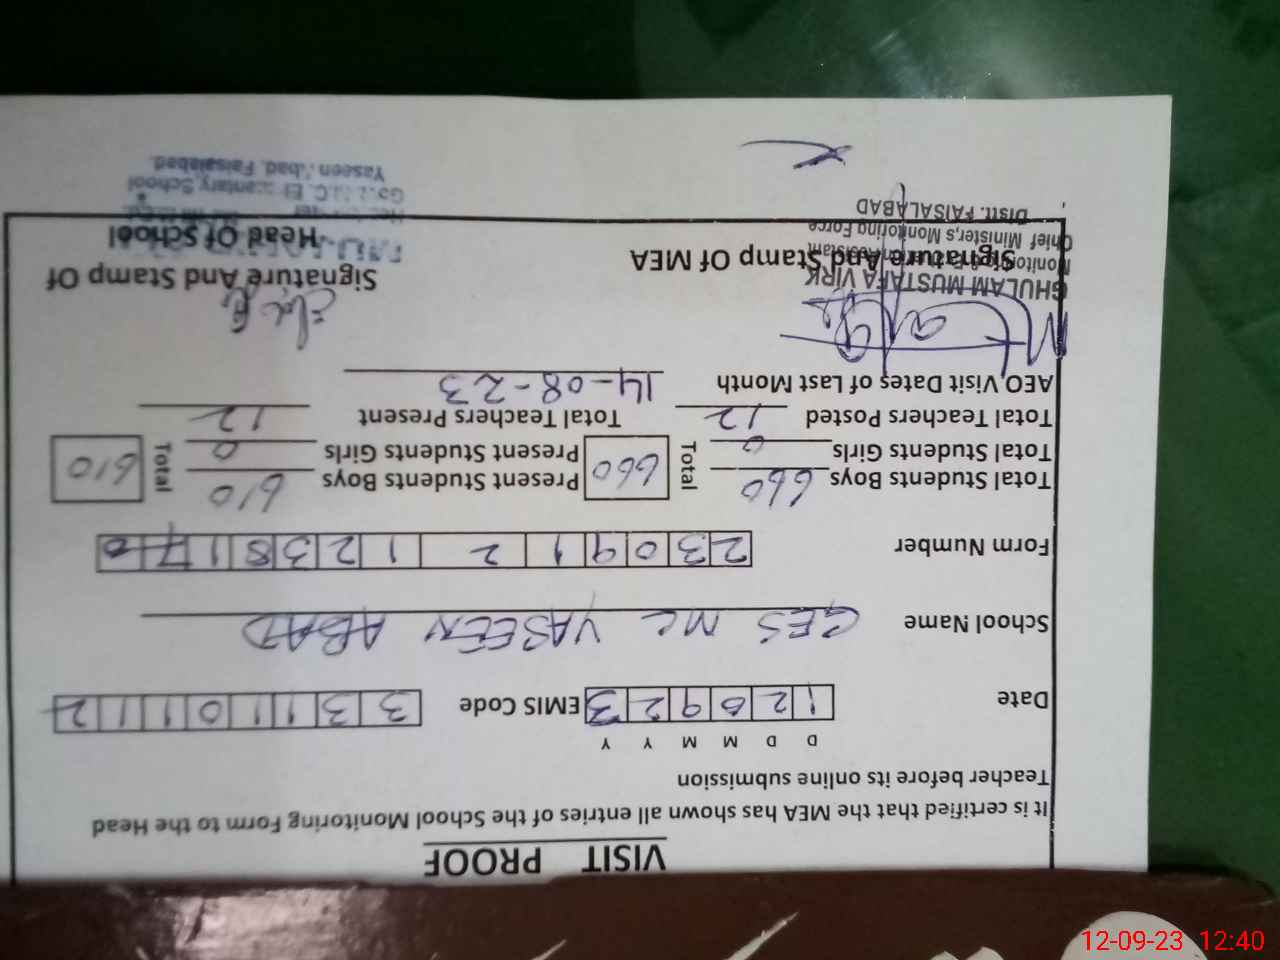 VISIT PROOF
It is certified that the MEA has shown all entries of the School Monitoring Form to the Head
Teacher before its online submission
D D M M Y Y
Date 120923 EMIS Code 33110112
School Name GES MC YASEEN ABAD
Form Number 2309121238176
Total Students Boys 660 Total 660 Present Students Boys 610 Total 610
Total Students Girls 0 Present Students Girls 0
Total Teachers Posted 12 Total Teachers Present 12
AEO Visit Dates of Last Month 14-08-23
GHULAM MUSTAFA VIRK
Signature And Stamp Of MEA
Signature And Stamp Of
Head Of School
Chief Minister,s Monitoring Force
Distt. FAISALABAD
School
Yaseen Abad, Faisalabad.
12-09-23 12:40